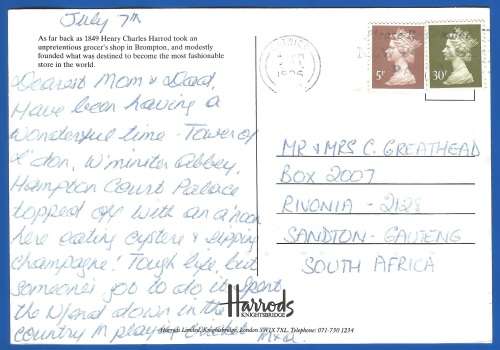 July 7th
As far back as 1849 Henry Charles Harrod took an
unpretentious grocer's shop in Brompton, and modestly
founded what was destined to become the most fashionable
store in the world.
Dearest Mom & Dad,
Have been having a
wonderful time - Tower of
L'don, W'minster Abbey,
Hampton Court Palace
topped off with an a'noon
here eating oysters & sipping
champagne! Tough life, but
someone's got to do it. Spent
the w/end down in the
country M playing cricket
Harrods
KNIGHTSBRIDGE
Harrods Limited, Knightsbridge, London SW1X 7XL. Telephone: 071-730 1234
5P
30P
MR & MRS C. GREATHEAD
BOX 2007
RIVONIA - 2128
SANDTON - GAUTENG
SOUTH AFRICA